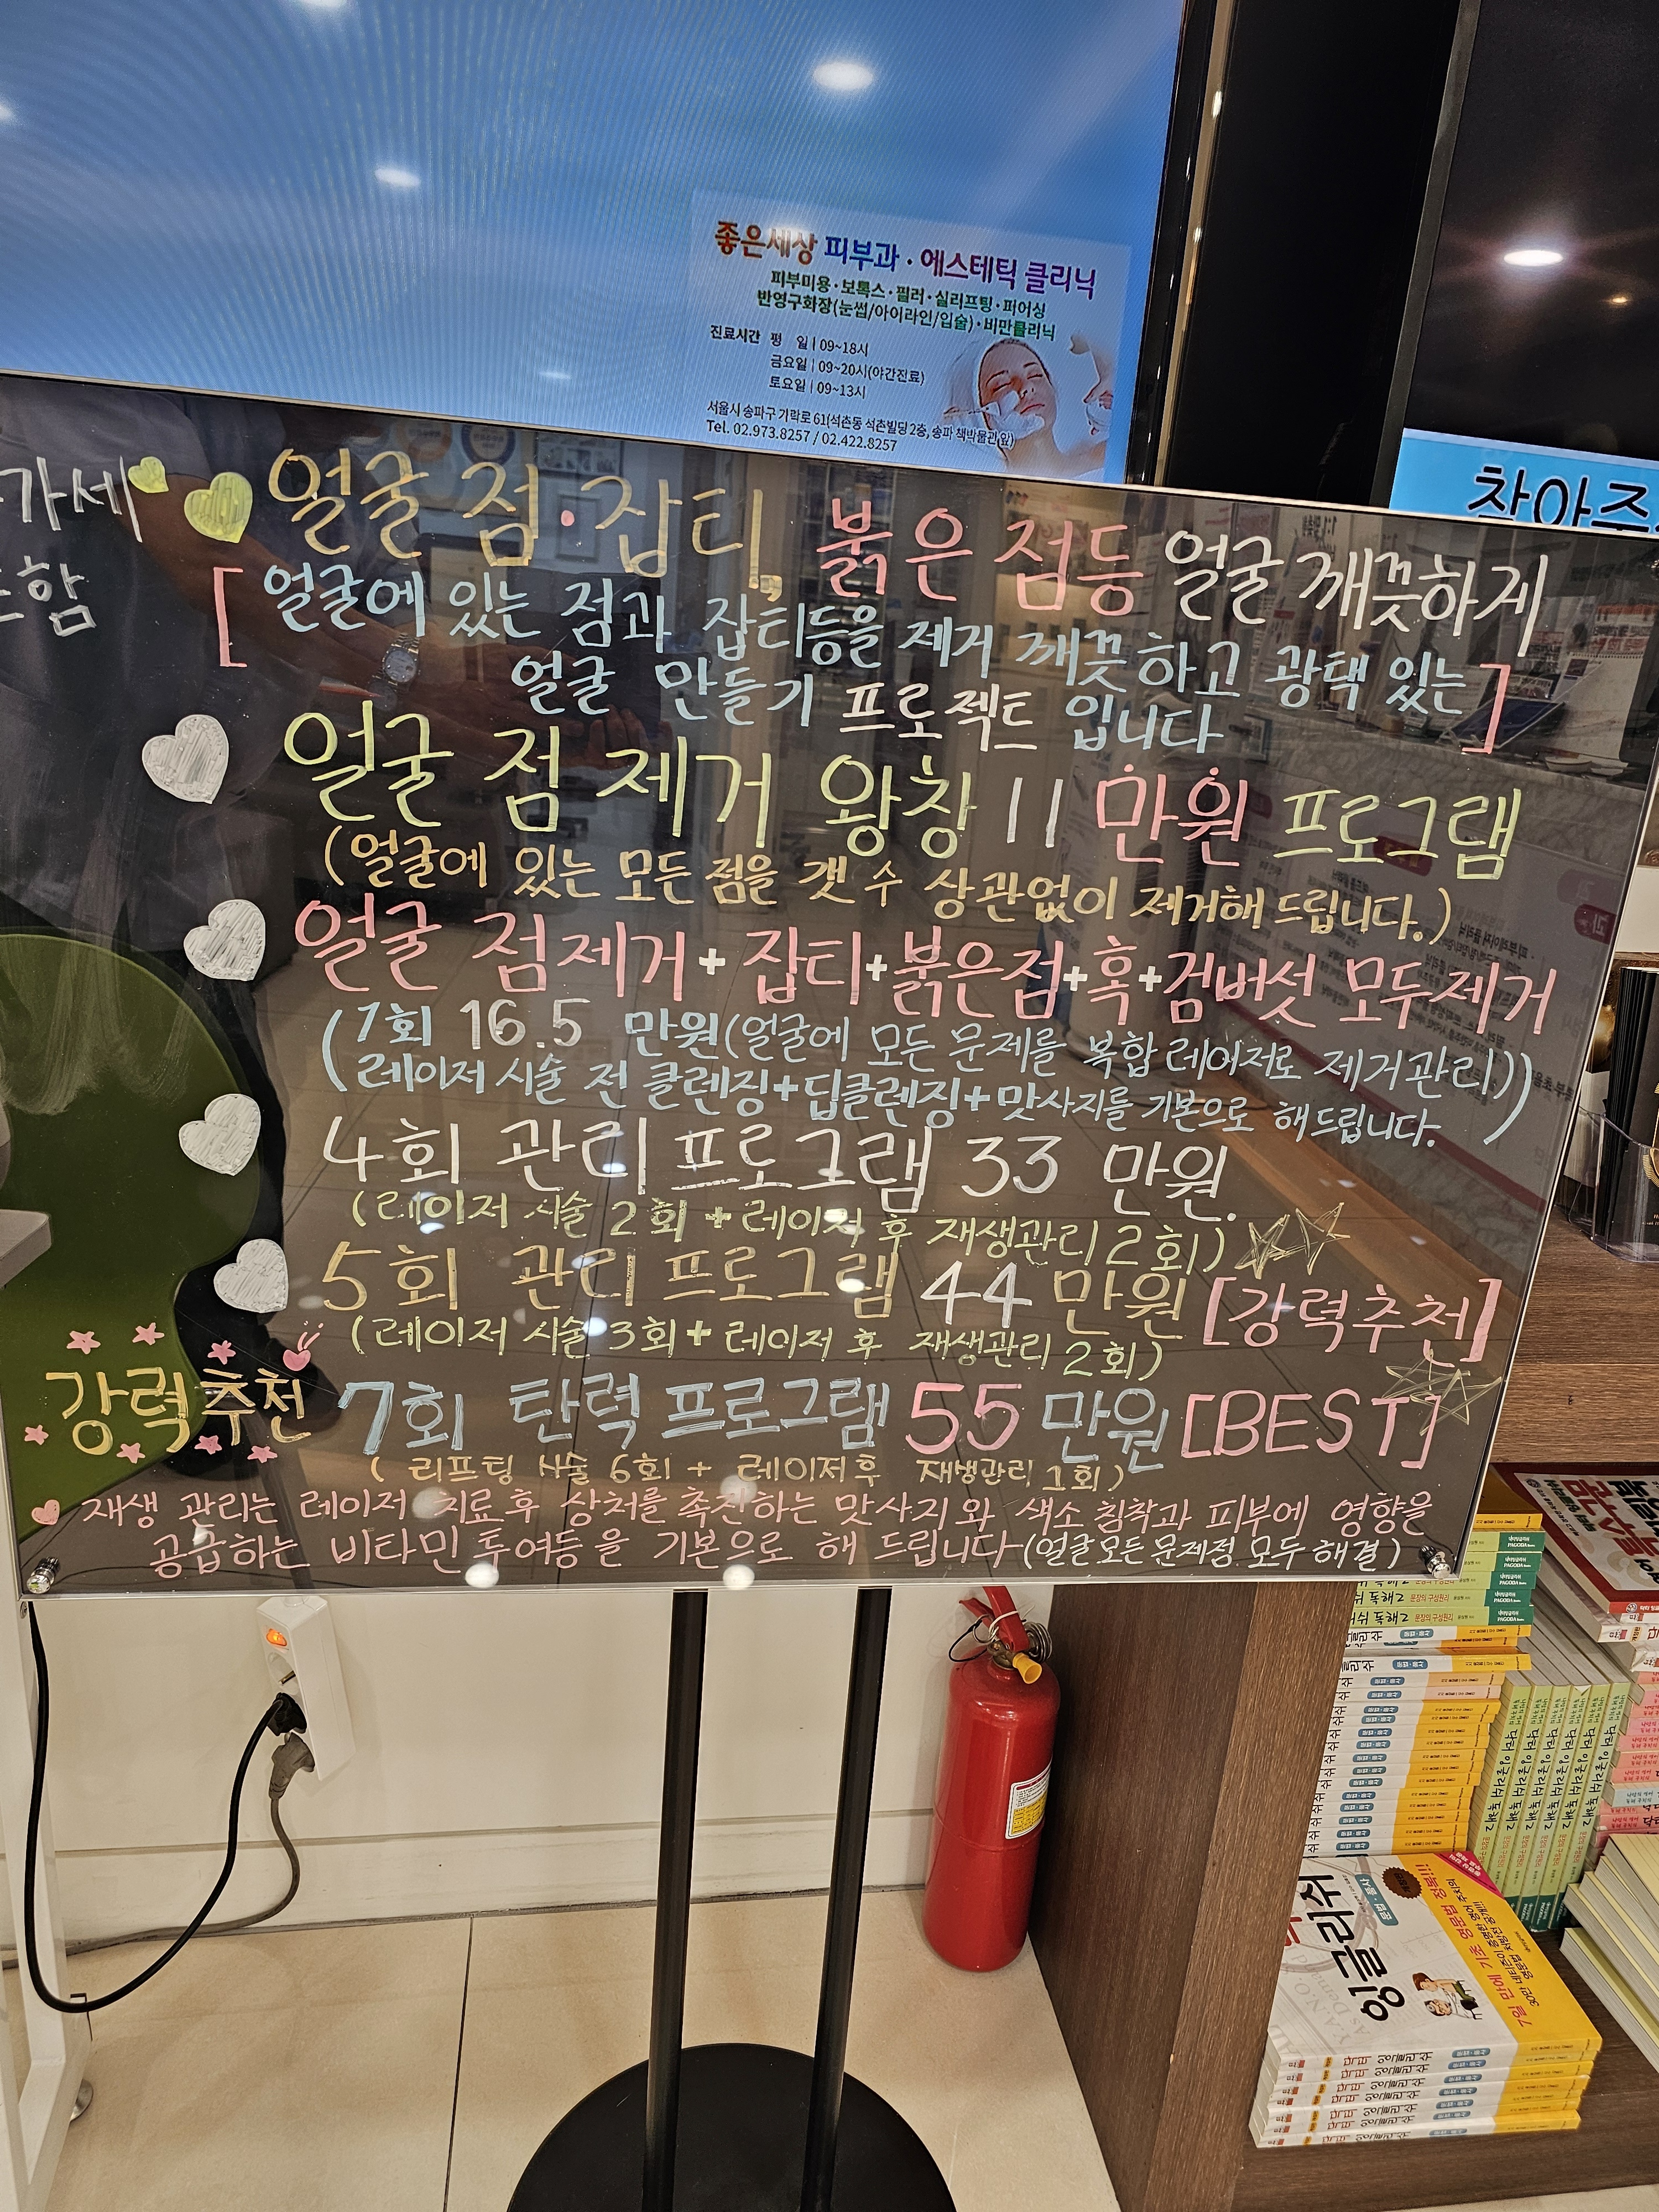 좋은세상 피부과·에스테틱 클리닉
피부미용·보톡스·필러·실리프팅·퍼어싱
반영구화장(눈썹/아이라인/입술)·비만클리닉
진료시간 평 일 | 09~18시
금요일 | 09~20시(야간진료)
토요일 | 09~13시
서울시 송파구 가락로 61(석촌동 석촌빌딩 2층, 송파 책박물관 앞)
Tel. 02.973.8257 / 02.422.8257
찾아주
가세
함
얼굴 점·잡티, 붉은 점등 얼굴 깨끗하게
[얼굴에 있는 점과 잡티등을 제거 깨끗하고 광택 있는
얼굴 만들기 프로젝트 입니다]
얼굴 점 제거 왕창 11 만원 프로그램
(얼굴에 있는 모든 점을 갯수 상관없이 제거해 드립니다.)
얼굴 점제거+잡티+붉은점+혹+검버섯 모두제거
(1회 16.5 만원(얼굴에 모든 문제를 복합 레이저로 제거관리)
레이저 시술 전 클렌징+딥클렌징+맛사지를 기본으로 해드립니다.)
4회 관리 프로그램 33 만원.
(레이저 시술 2회 + 레이저 후 재생관리 2회)
5회 관리 프로그램 44 만원 [강력추천]
(레이저 시술 3회+ 레이저 후 재생관리 2회)
강력추천 7회 탄력 프로그램 55 만원 [BEST]
(리프팅 시술 6회 + 레이저후 재생관리 1회)
재생 관리는 레이저 치료후 상처를 촉진하는 맛사지와 색소침착과 피부에 영향을
공급하는 비타민 투여등을 기본으로 해 드립니다(얼굴모든문제점 모두해결)
잉글리쉬
7일 만에 기초 영문법 정복!!!
닥터 잉글리쉬 독해 2
PAGODA Books